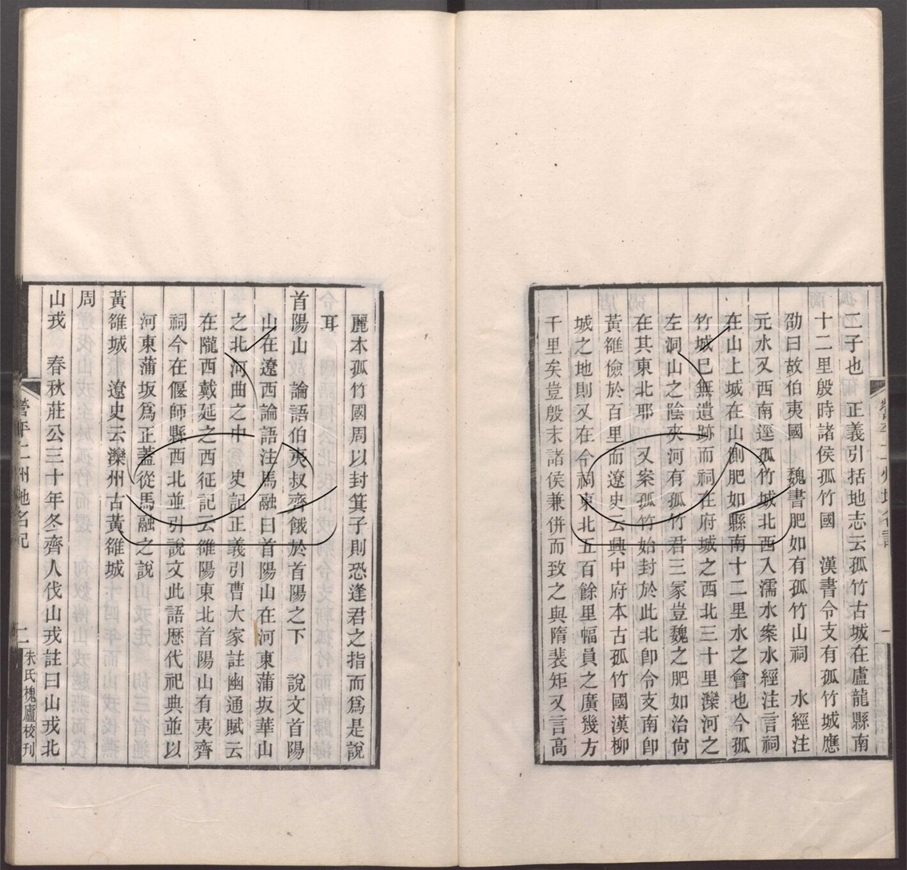 二子也　正義引括地志云孤竹古城在盧龍縣南
十二里殷時諸侯孤竹國　漢書令支有孤竹城應
劭曰故伯夷國　魏書肥如有孤竹山祠　水經注
元水又西南逕孤竹城北西入濡水案水經注言祠
在山上城在山側肥如縣南十二里水之會也今孤
竹城巳無遺跡而祠在府城之西北三十里灤河之
左洞山之陰夾河有孤竹君三冢豈魏之肥如治尙
在其東北耶　又案孤竹始封於此北卽令支南卽
黃雒儉於百里而遼史云興中府本古孤竹國漢柳
城之地則又在今祠東北五百餘里幅員之廣幾方
千里矣豈殷末諸侯兼併而致之與隋裴矩又言高
麗本孤竹國周以封箕子則恐逢君之指而爲是說
耳
首陽山　論語伯夷叔齊餓於首陽之下　說文首陽
山在遼西論語注馬融曰首陽山在河東蒲坂華山
之北河曲之中　史記正義引曹大家註幽通賦云
在隴西戴延之西征記云雒陽東北首陽山有夷齊
祠今在偃師縣西北並引說文此語歷代祀典並以
河東蒲坂爲正蓋從馬融之說
黃雒城　遼史云灤州古黃雒城
周
山戎　春秋莊公三十年冬齊人伐山戎註曰山戎北
營平二州地名記
二
朱氏槐廬校刊